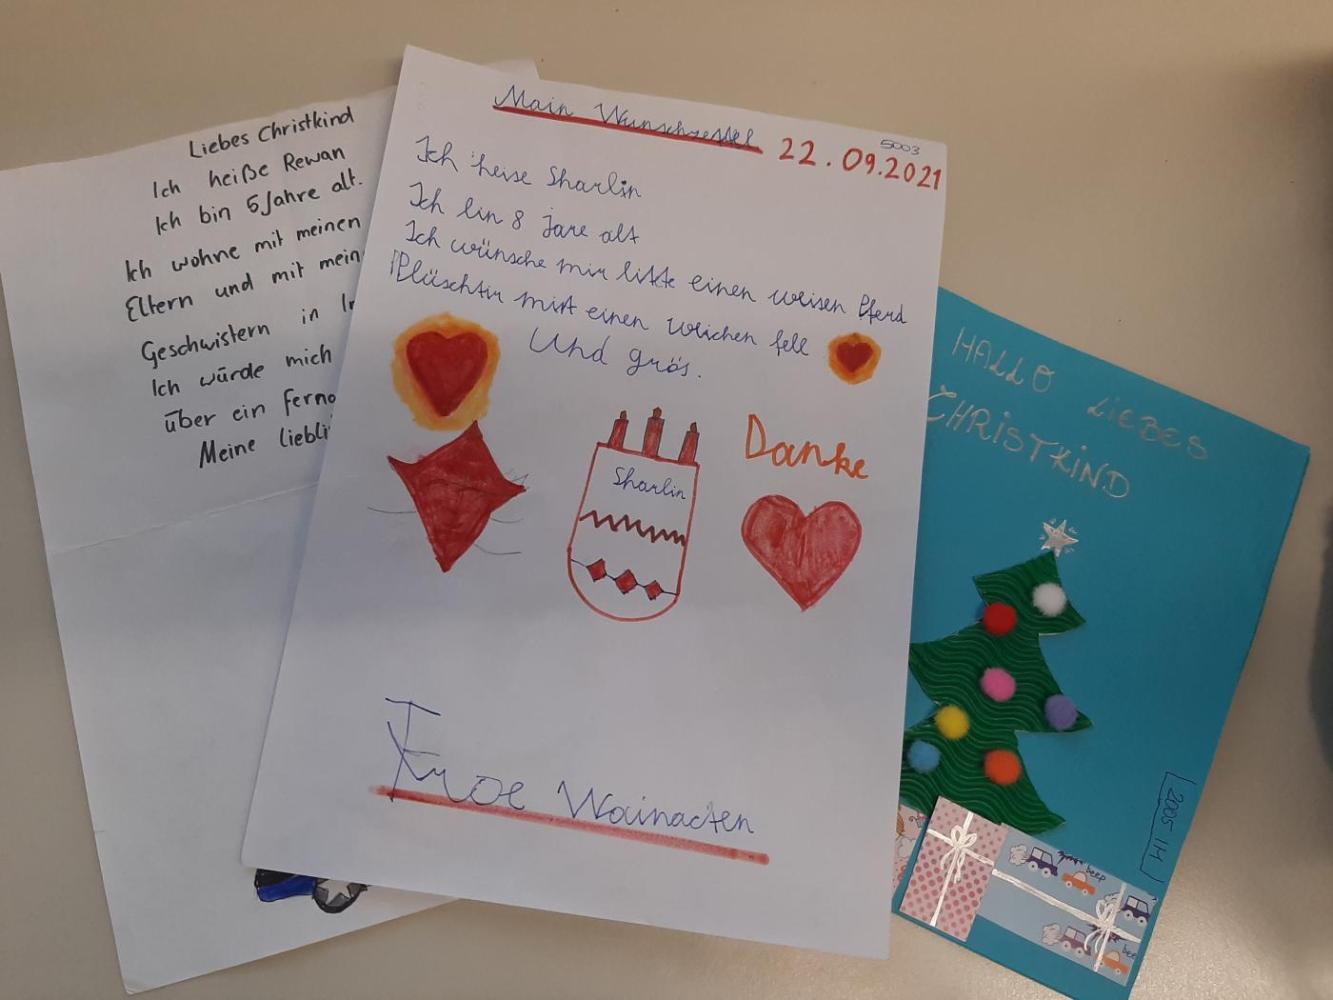 Liebes Christkind
Ich heiße Rewan
Ich bin 5 Jahre alt.
Ich wohne mit meinen
Eltern und mit mein
Geschwistern in
Ich würde mich
über ein ferno
Meine liebli
Main Wunschzettel 22.09.2021
5003
Ich heise Sharlin
Ich bin 8 jare alt
Ich wünsche mir bitte einen weisen Pferd
Plüschtir mit einen weichen fell
Und grös.
Danke
Sharlin
Froe Wainacten
HALLO LIEBES
CHRISTKIND
2005 IH
beep
beep